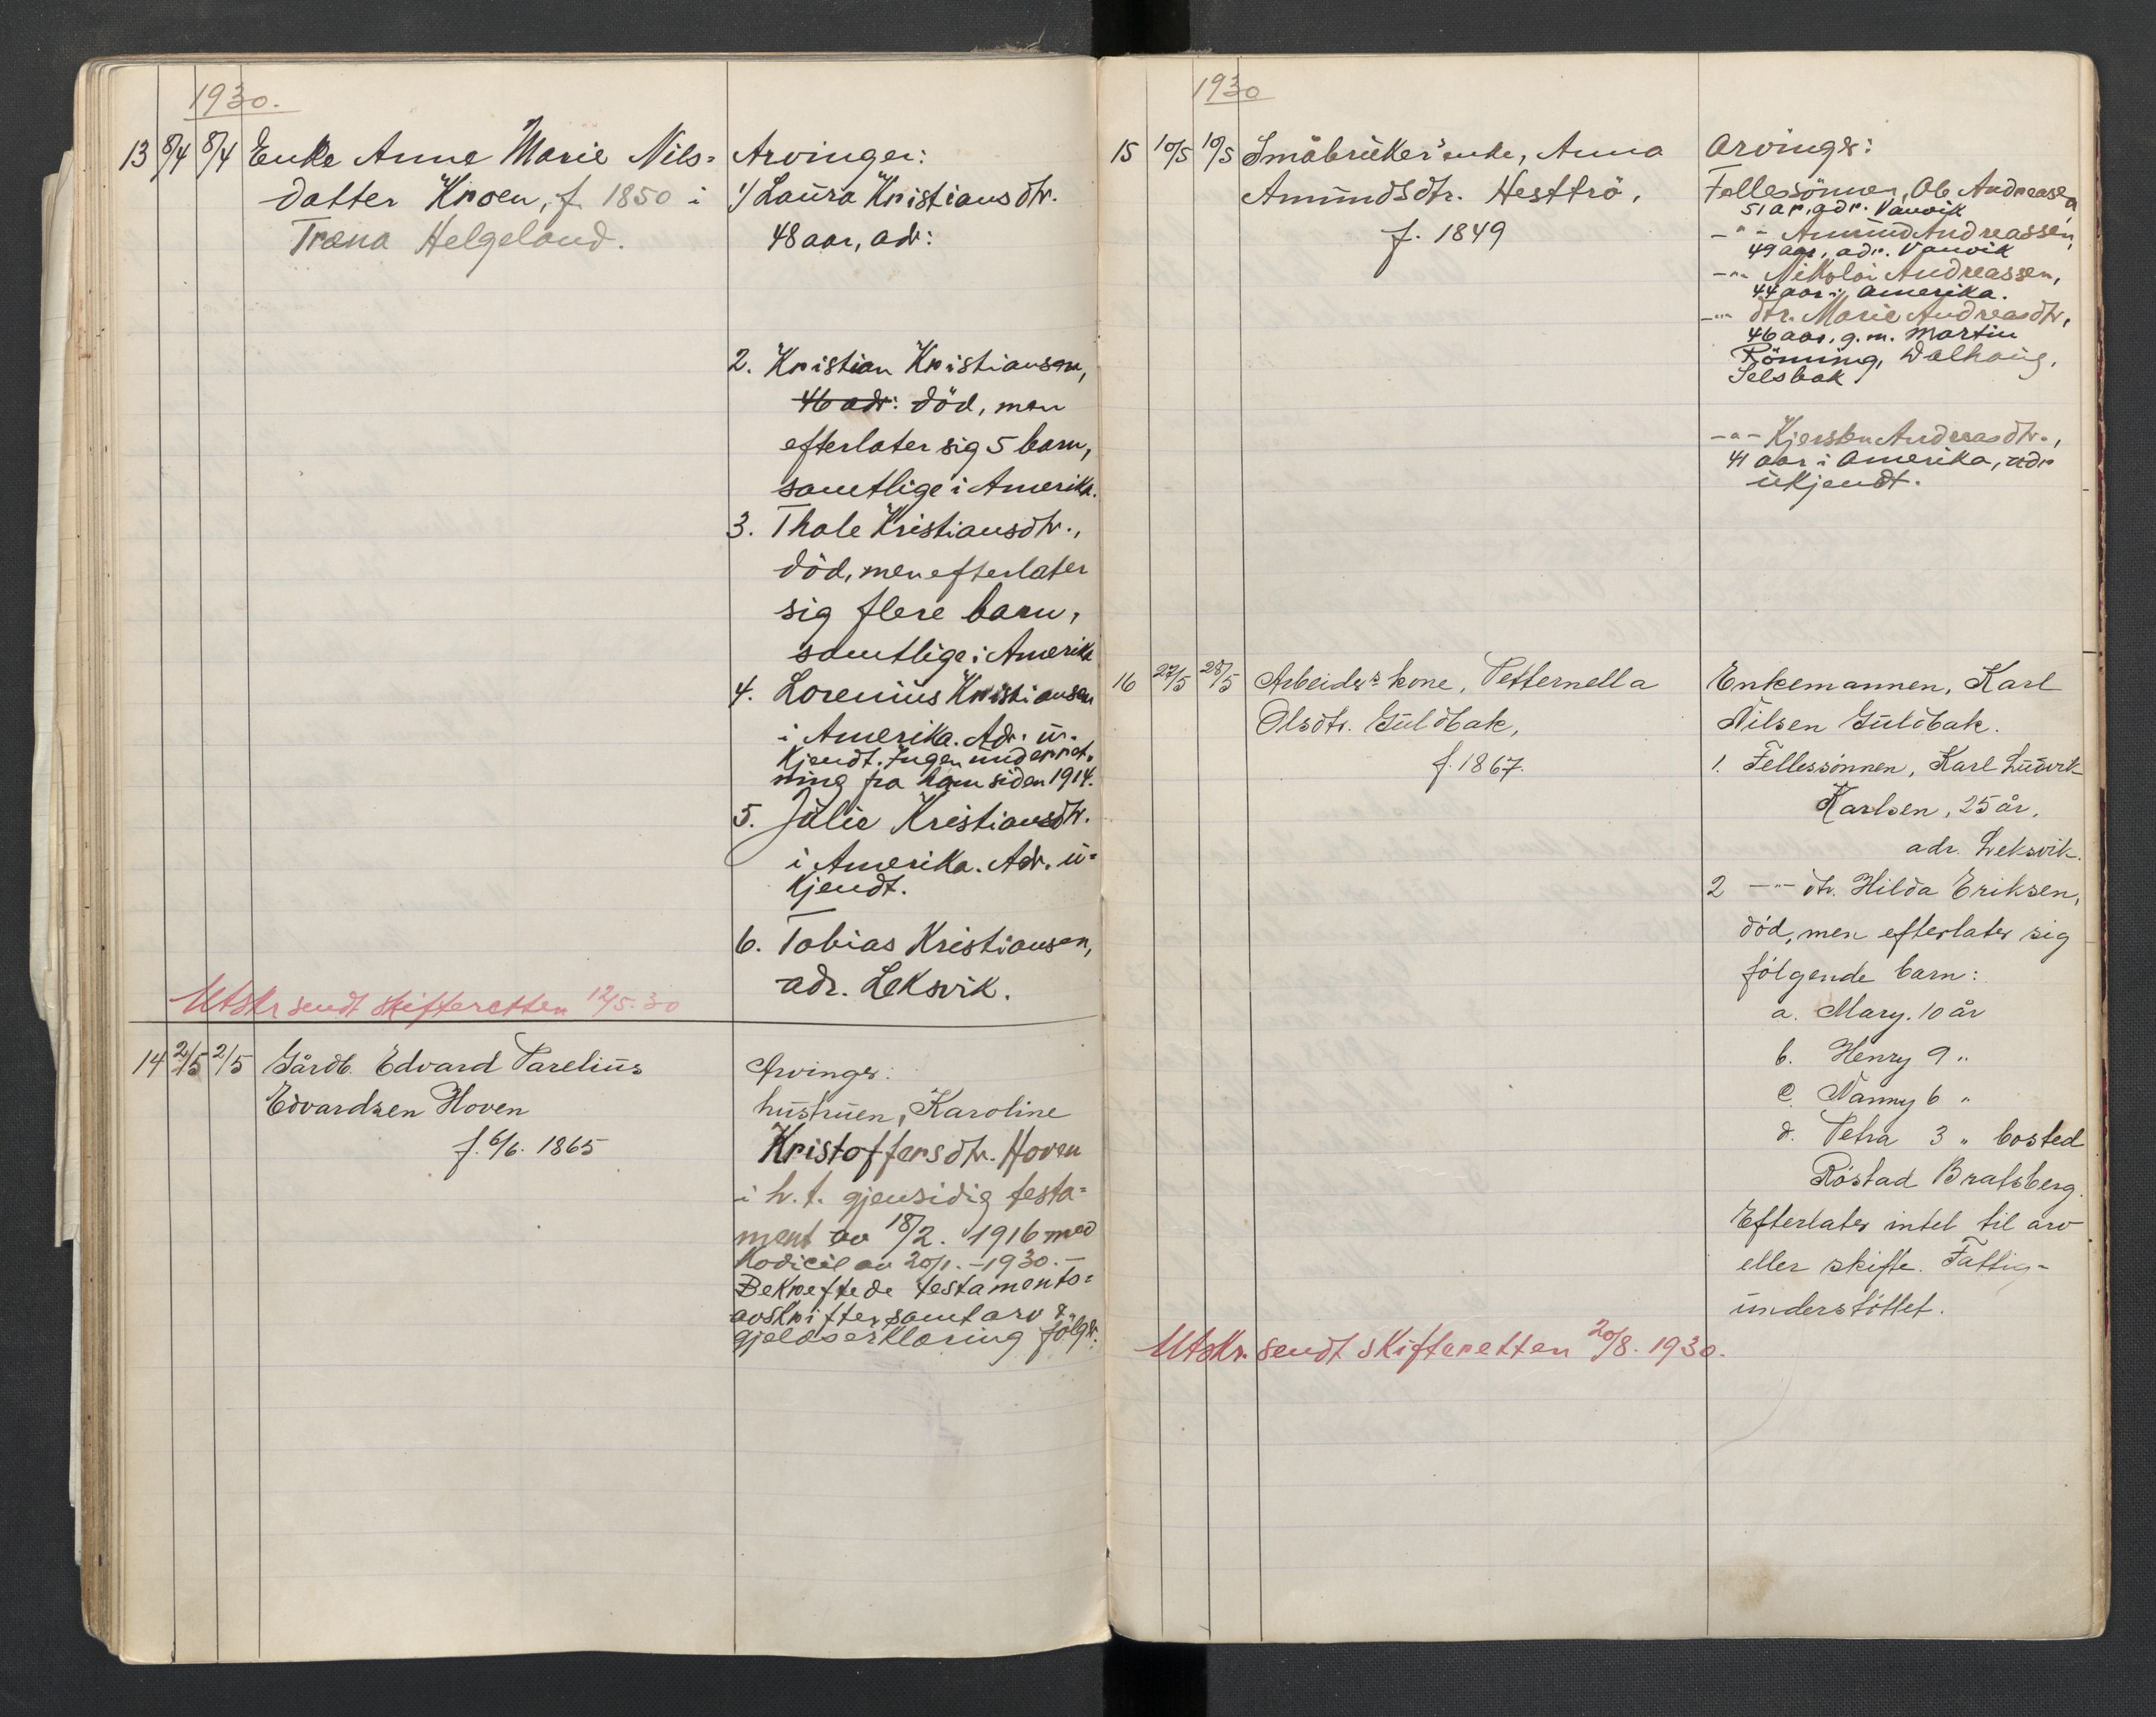 1930.
13 8/4 8/4 Enke Anne Marie Nils=
datter Kroen, f. 1850 i
Træna Helgeland.
Arvinger:
1/ Laura Kristiansdtr.
48 aar, adr:
2. Kristian Kristiansen,
46 adr: död, men
efterlater sig 5 barn,
samtlige i Amerika.
3. Thale Kristiansdtr.,
död, men efterlater
sig flere barn,
samtlige i Amerika
4. Lorenius Kristiansen
i Amerika. Adr. u-
kjendt. Ingen underret-
ning fra ham siden 1914.
5. Julie Kristiansdtr.
i Amerika. Adr. u=
kjendt.
6. Tobias Kristiansen,
adr. Leksvik.
Utskr sendt skifteretten 12/5.30
14 2/5 2/5 Gårdb. Edvard Parelius
Edvardsen Hoven
f. 6/6. 1865
Arvinger:
hustruen, Karoline
Kristoffersdtr. Hoven
i h.t. gjensidig testa=
ment av 18/2. 1916 med
kodicil av 20/1. - 1930. -
Bekreftede testaments=
avskrifter samt arv &
gjeldserklæring følger.
1930
15 10/5 10/5 Småbruker's enke, Anna
Amundsdtr. Hesttrö,
f. 1849
Arvinger:
Fellessönnen, Ole Andreasen,
51 år, adr. Vanvik
-"- Amund Andreassen,
49 aar, adr. Vanvik
-"- Nikolai Andreassen,
44 aar i Amerika.
-"- dtr. Marie Andreasdtr,
46 aar, g.m. Martin
Rönning, Dalhaug,
Selsbak
-"- Kjersten Andreasdtr.,
41 aar i Amerika, adr
ukjendt.
16 27/5 28/5 Arbeiders kone, Petternella
Olsdtr. Guldbak,
f. 1867.
Enkemannen, Karl
Nilsen Guldbak.
1. Fellessönnen, Karl Ludvik
Karlsen, 25 år,
adr. Leksvik.
2 -"- dtr. Hilda Eriksen,
död, men efterlater sig
fölgende barn:
a. Mary. 10 år
b. Henry 9 "
c. Nanny 6 "
d. Petra 3 " bosted
Röstad Bratsberg.
Efterlater intet til arv
eller skifte. Fattig-
understöttet.
Utskr. sendt skifteretten 20/8. 1930.